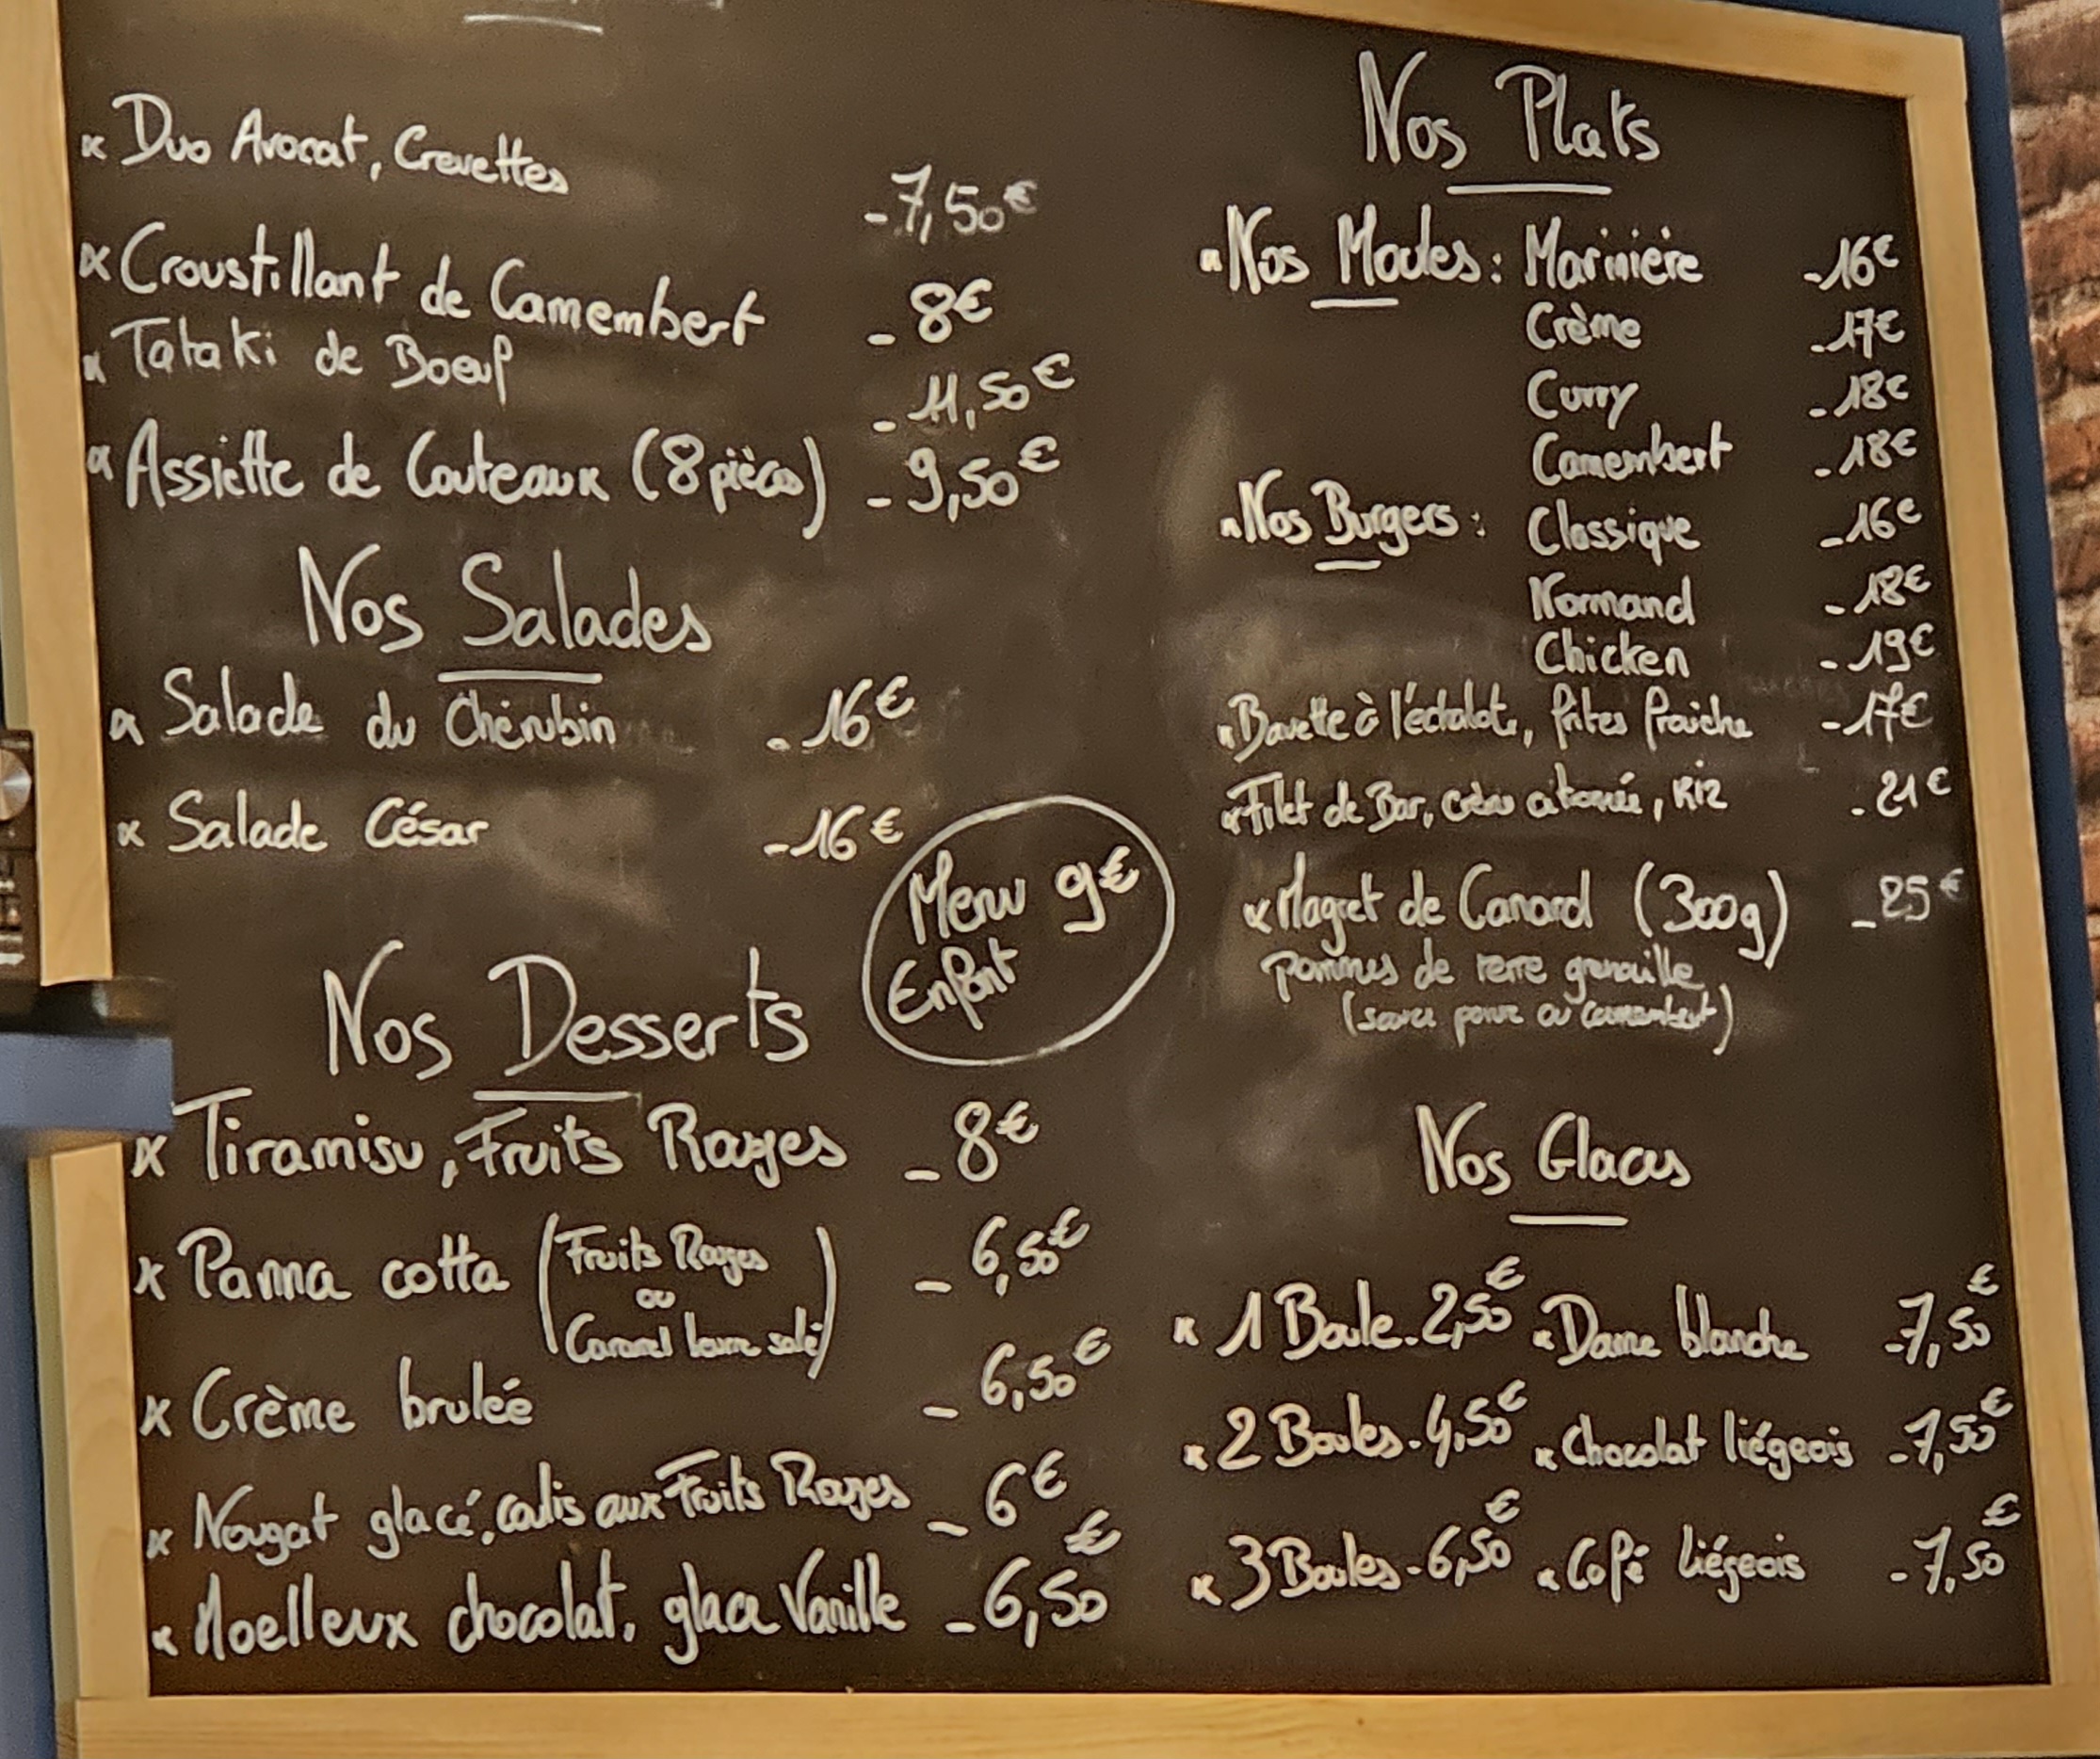 × Duo Avocat, Crevettes -7,50€
× Croustillant de Camembert - 8€
× Tataki de Boeuf - 11,50€
× Assiette de Couteaux (8 pièces) - 9,50€
Nos Salades
× Salade du Chérubin - 16€
× Salade César - 16€
Menu 9€
Enfant
Nos Desserts
× Tiramisu, Fruits Rouges - 8€
× Panna cotta (Fruits Rouges
ou
Caramel beurre salé) - 6,50€
× Crème bruleé - 6,50€
× Nougat glacé, coulis aux Fruits Rouges - 6€
× Moelleux chocolat, glace Vanille - 6,50€
Nos Plats
× Nos Moules : Marinière - 16€
Crème - 17€
Curry - 18€
Camembert - 18€
× Nos Burgers : Classique - 16€
Normand - 18€
Chicken - 19€
× Bavette à l'échalote, frites fraiche - 17€
× Filet de Bar, crème citronnée, Riz - 21€
× Magret de Canard (300g) - 25€
pommes de terre grenaille
(sauce poivre ou camembert)
Nos Glaces
× 1 Boule - 2,50€ × Dame blanche - 7,50€
× 2 Boules - 4,50€ × Chocolat liégeois - 7,50€
× 3 Boules - 6,50€ × Café liégeois - 7,50€